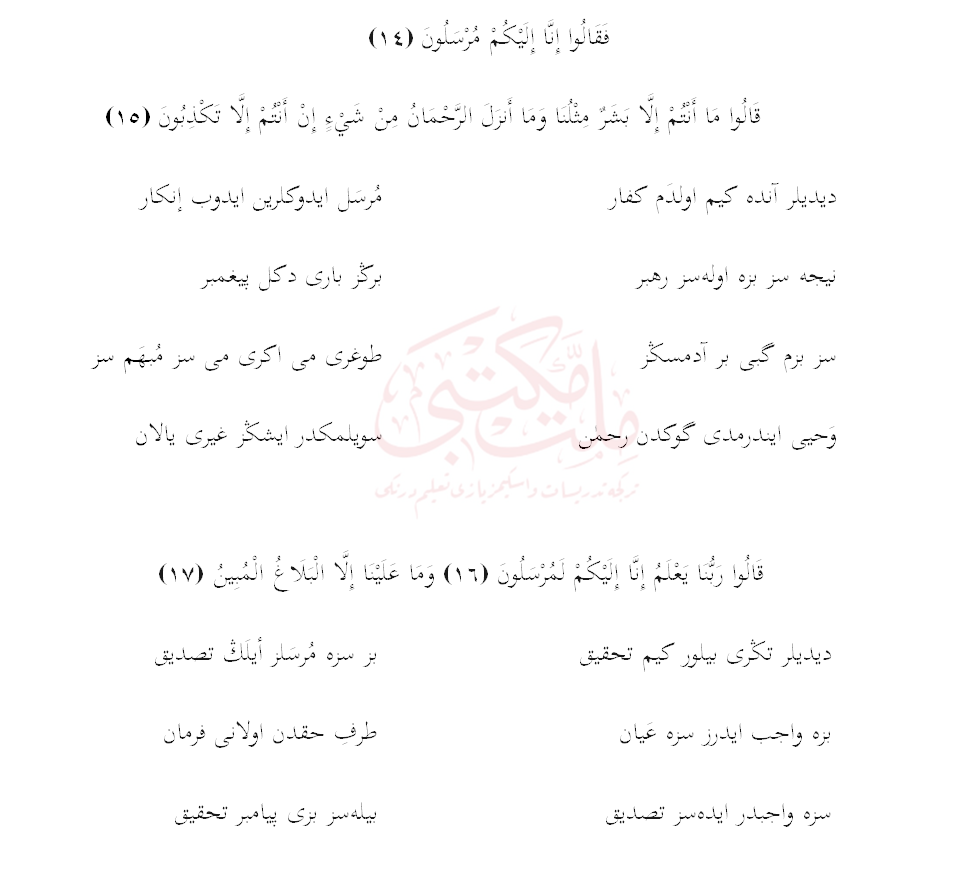 فَقَالُوا إِنَّا إِلَيْكُمْ مُرْسَلُونَ (١٤)
قَالُوا مَا أَنْتُمْ إِلَّا بَشَرٌ مِثْلُنَا وَمَا أَنزَلَ الرَّحْمَانُ مِنْ شَيْءٍ إِنْ أَنْتُمْ إِلَّا تَكْذِبُونَ (١٥)
دیدیلر آنده کیم اولدَم کفار مُرسَل ایدوکلرین ایدوب إنکار
نیجه سز بزه اوله‌سز رهبر برڭز باری دکل پیغمبر
سز بزم گبی بر آدمسڭز طوغری می اکری می سز مُبهَم سز
وَحیی ایندرمدی گوکدن رحمٰن سویلمکدر ایشڭز غیری یالان
ملت مکتبی
ترکجه تدریسات و اسکیمز یازی تعلیم درنکی
قَالُوا رَبُّنَا يَعْلَمُ إِنَّا إِلَيْكُمْ لَمُرْسَلُونَ (١٦) وَمَا عَلَيْنَا إِلَّا الْبَلَاغُ الْمُبِينُ (١٧)
دیدیلر تڭری بیلور کیم تحقیق بز سزه مُرسَلز أیلَڭ تصدیق
بزه واجب ایدرز سزه عَیان طرفِ حقدن اولانی فرمان
سزه واجبدر ایده‌سز تصدیق بیله‌سز بزی پیامبر تحقیق